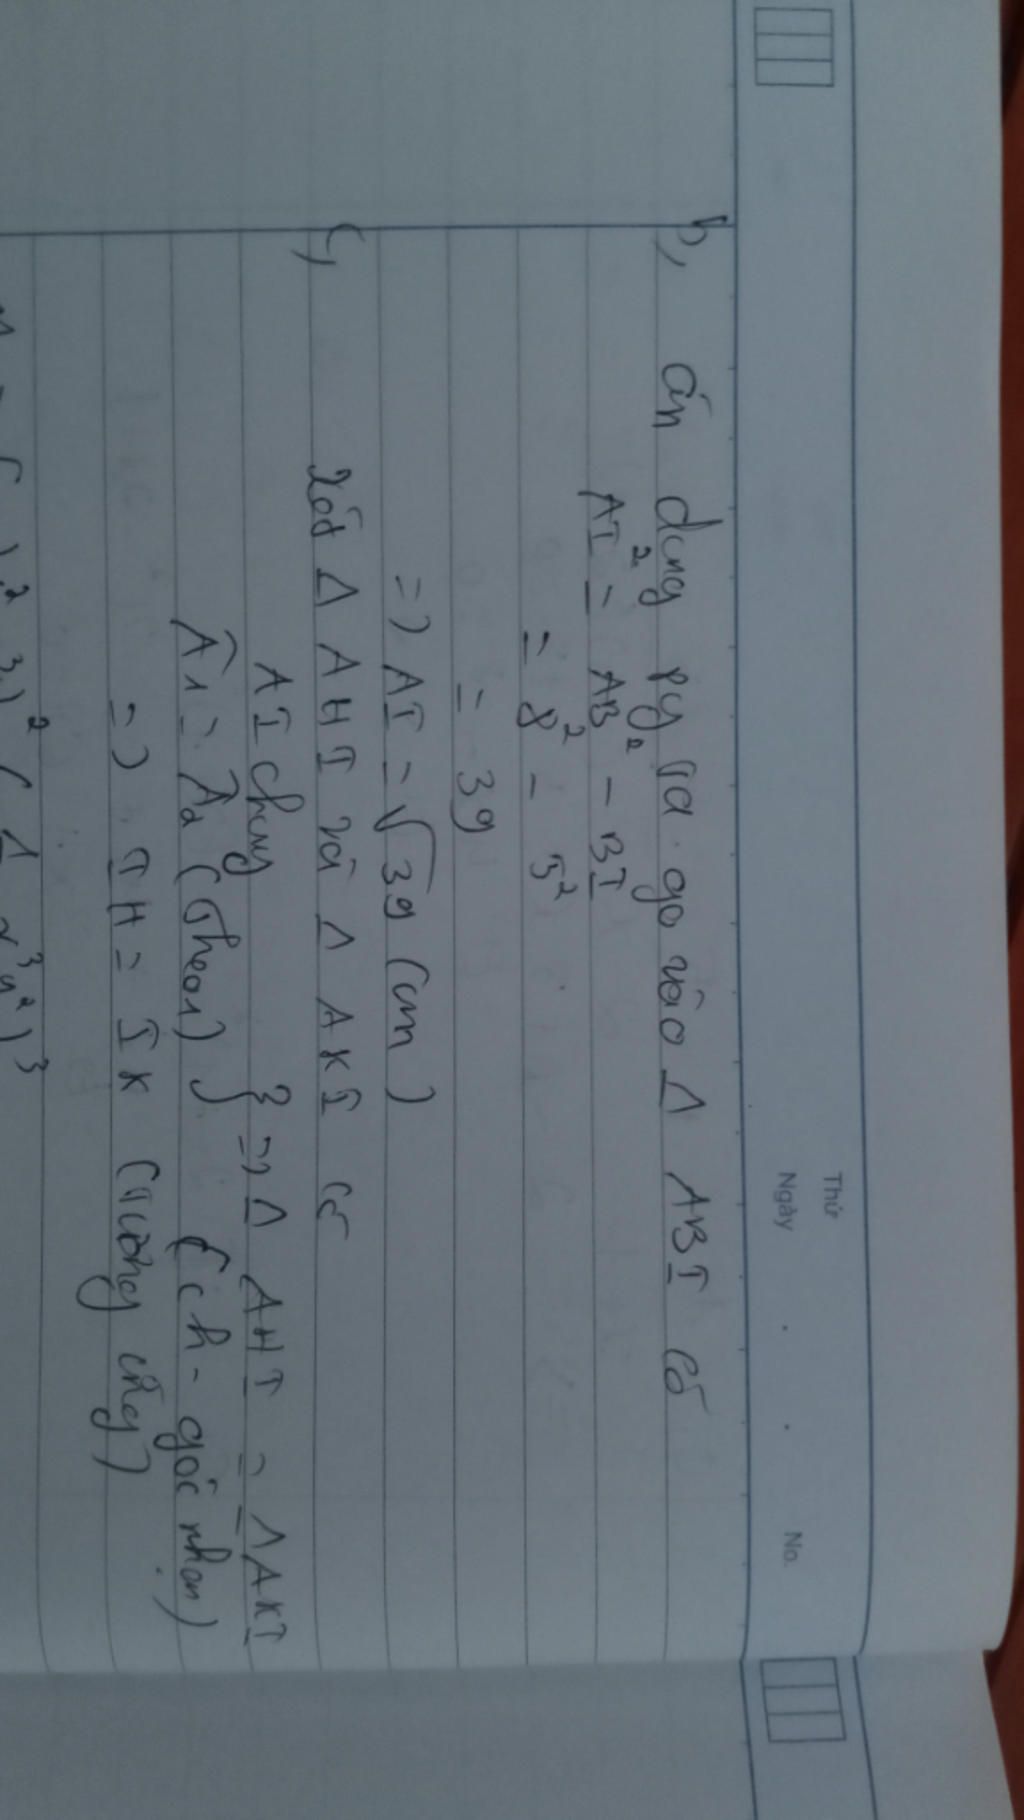 Thứ
Ngày . . No.
b, áp dụng py ta go vào Δ ABI có
AI² = AB² - BI
= 8² - 5²
= 39
=) AI = √39 (cm)
c, Xét Δ AHI và Δ AKI có
AI chung } => Δ AHI = Δ AKI
Â1 = Â2 (theo1) (ch - góc nhọn)
=) IH = IK (tương ứng)